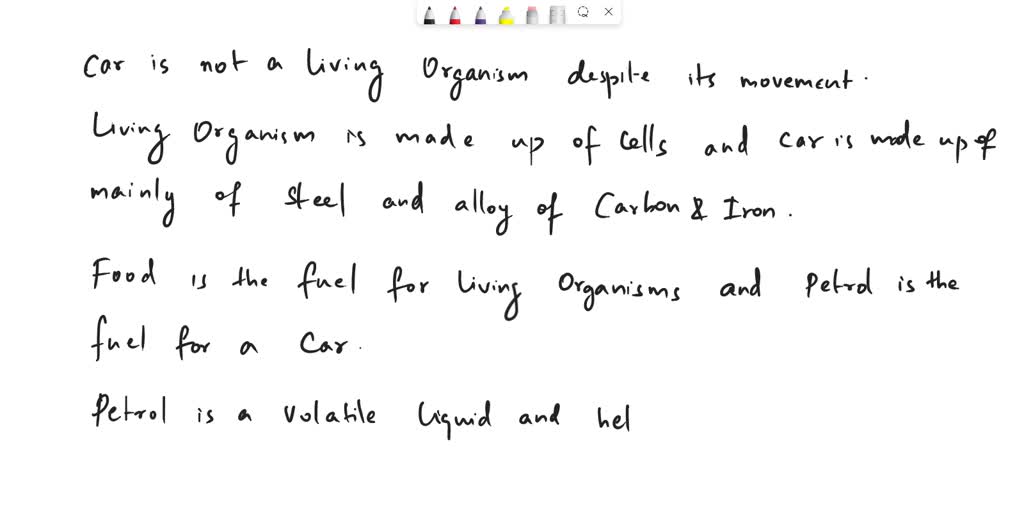 Car is not a living Organism despite its movement.
Living Organism is made up of Cells and Car is made up of
mainly of Steel and alloy of Carbon & Iron.
Food is the fuel for living Organisms and Petrol is the
fuel for a Car.
Petrol is a Volatile liquid and hel